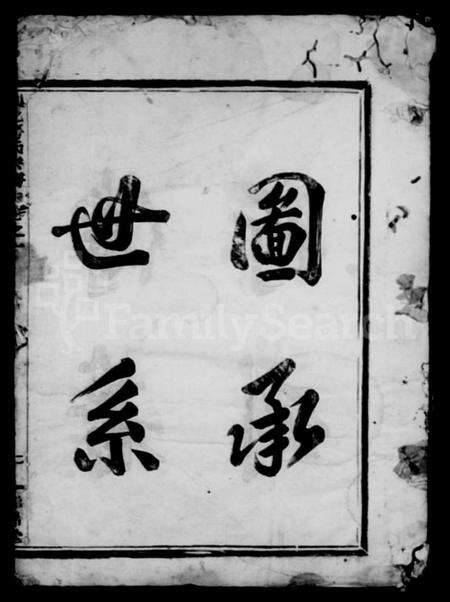 圖承
世系
FamilySearch